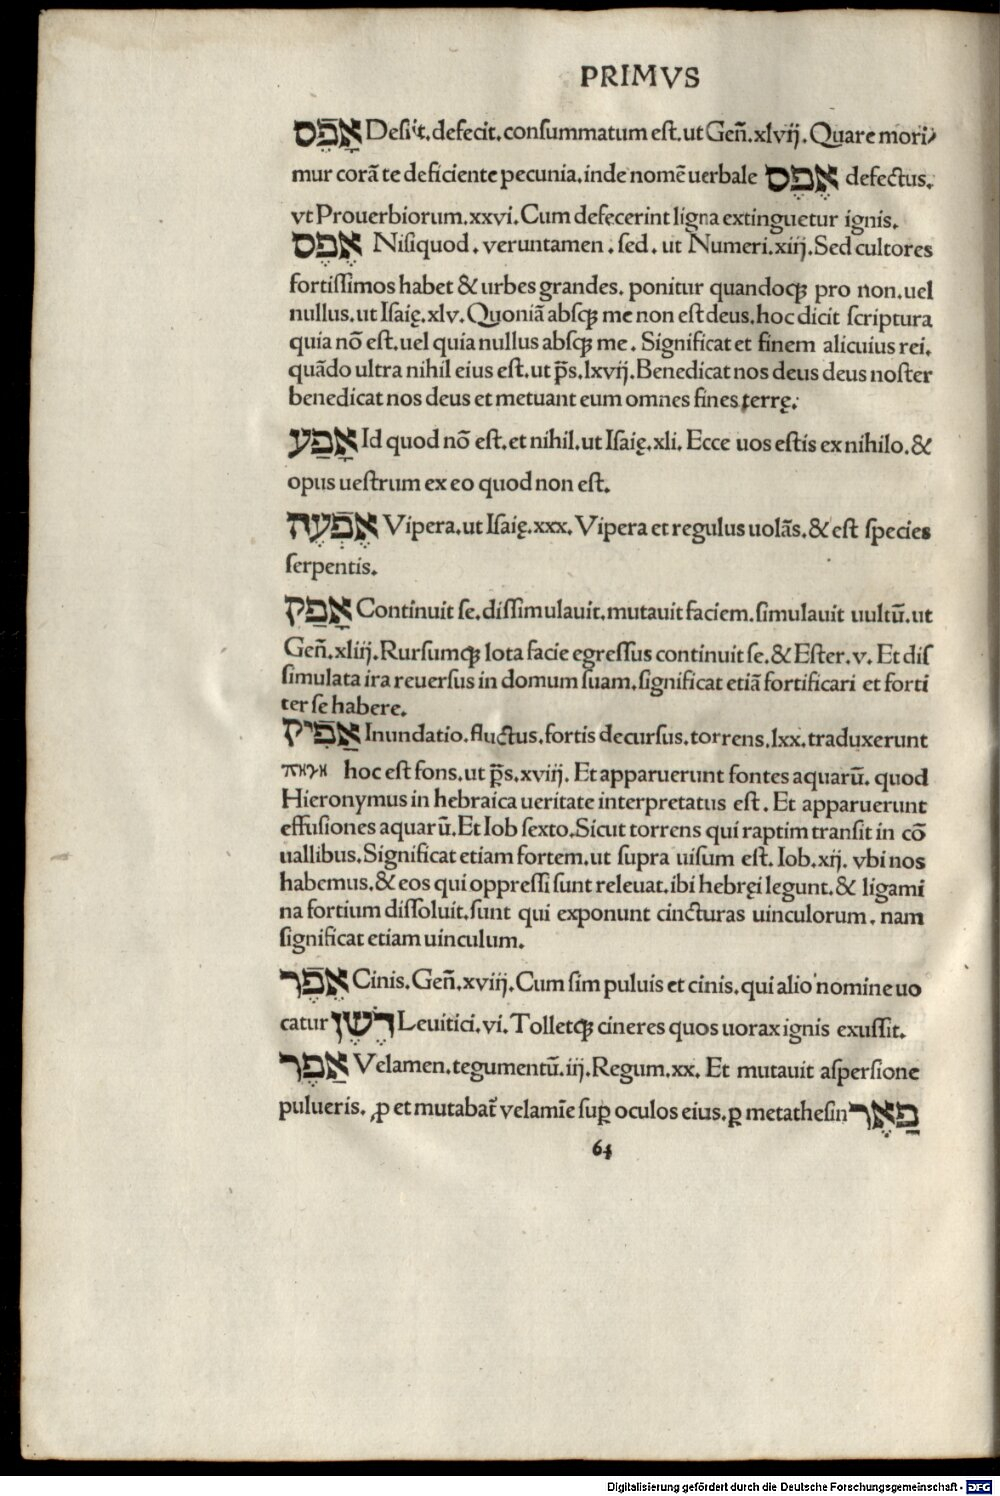 PRIMVS
אָפֵס Desiit. defecit. consummatum est. ut Gen̄. xlvij. Quare mori
mur corā te deficiente pecunia. inde nomē uerbale אֶפֶס defectus.
vt Prouerbiorum. xxvi. Cum defecerint ligna extinguetur ignis.
אֶפֶס Nisiquod. veruntamen. sed. ut Numeri. xiij. Sed cultores
fortissimos habet & urbes grandes. ponitur quandoqꝫ pro non. uel
nullus. ut Isaię. xlv. Quoniā absqꝫ me non est deus. hoc dicit scriptura
quia nō est. uel quia nullus absqꝫ me. Significat et finem alicuius rei.
quādo ultra nihil eius est. ut p̄s. lxvij. Benedicat nos deus deus noster
benedicat nos deus et metuant eum omnes fines terrę.
אָפַע Id quod nō est. et nihil. ut Isaię. xli. Ecce uos estis ex nihilo. &
opus uestrum ex eo quod non est.
אֶפְעֶה Vipera. ut Isaię. xxx. Vipera et regulus uolās. & est species
serpentis.
אָפַק Continuit se. dissimulauit. mutauit faciem. simulauit uultū. ut
Gen̄. xliij. Rursumqꝫ lota facie egressus continuit se. & Ester. v. Et dis
simulata ira reuersus in domum suam. significat etiā fortificari et forti
ter se habere.
אַפִיק Inundatio. fluctus. fortis decursus. torrens. lxx. traduxerunt
hoc est fons. ut p̄s. xviij. Et apparuerunt fontes aquarū. quod
Hieronymus in hebraica ueritate interpretatus est. Et apparuerunt
effusiones aquarū. Et Iob sexto. Sicut torrens qui raptim transit in cō
uallibus. Significat etiam fortem. ut supra uisum est. Iob. xij. vbi nos
habemus. & eos qui oppressi sunt releuat. ibi hebręi legunt. & ligami
na fortium dissoluit. sunt qui exponunt cincturas uinculorum. nam
significat etiam uinculum.
אֵפֶר Cinis. Gen̄. xviij. Cum sim puluis et cinis. qui alio nomine uo
catur דֶשֶן Leuitici. vi. Tolletqꝫ cineres quos uorax ignis exussit.
אַפֶר Velamen. tegumentū. iij. Regum. xx. Et mutauit aspersione
pulueris. ꝓ et mutabat̄ velamīe suꝑ oculos eius. ꝑ metathesin פַאֶר
64
Digitalisierung gefördert durch die Deutsche Forschungsgemeinschaft - DFG